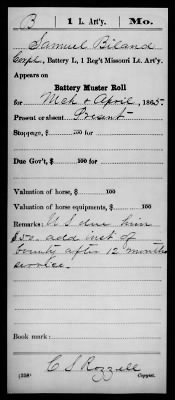 B | 1 L. Art'y. | Mo.
Samuel Biland
Corpl., Battery L, 1 Reg't Missouri Lt. Art'y.
Appears on
Battery Muster Roll
for Mch & April, 1865.
Present or absent Present
Stoppage, $ 100 for
Due Gov't, $ 100 for
Valuation of horse, $ 100
Valuation of horse equipments, $ 100
Remarks: U S due him
$50. add inst of
bounty after 12 months
service.
Book mark:
C S Rozzell
(358) Copyist.